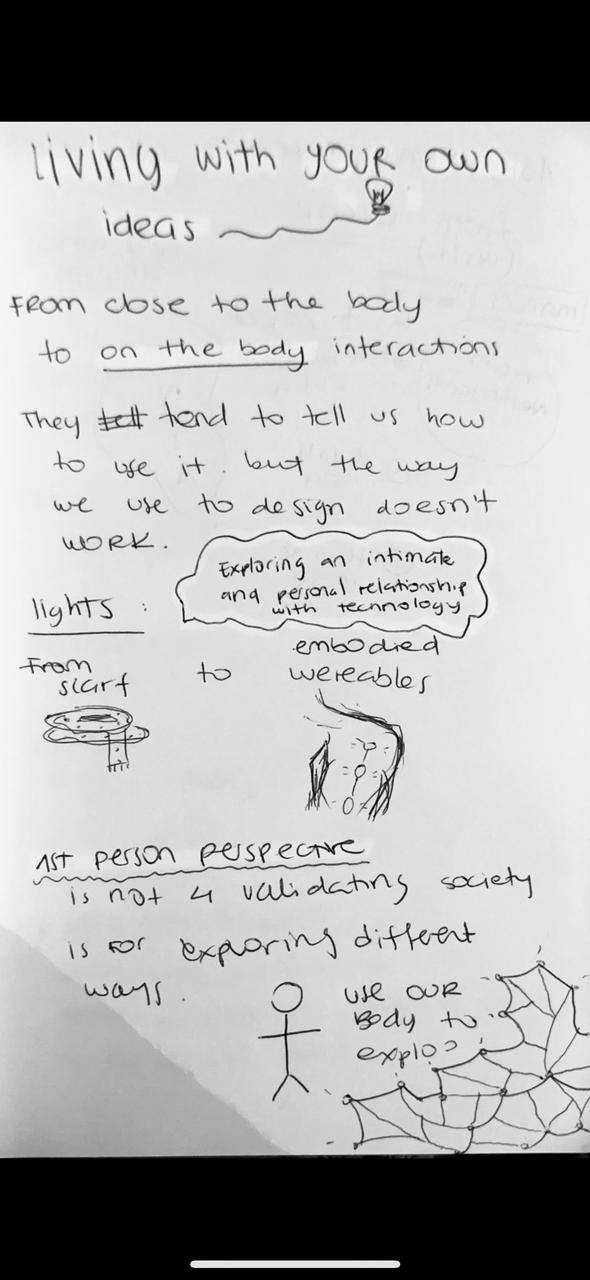 living with your own
ideas
From close to the body
to on the body interactions
They tell tend to tell us how
to use it. but the way
we use to design doesn't
work.
Exploring an intimate
and personal relationship
with technology
lights :
From scarf to embodied wereables
1st person perspective
is not 4 validating society
is for exploring different
ways.
use our
Body to
explo